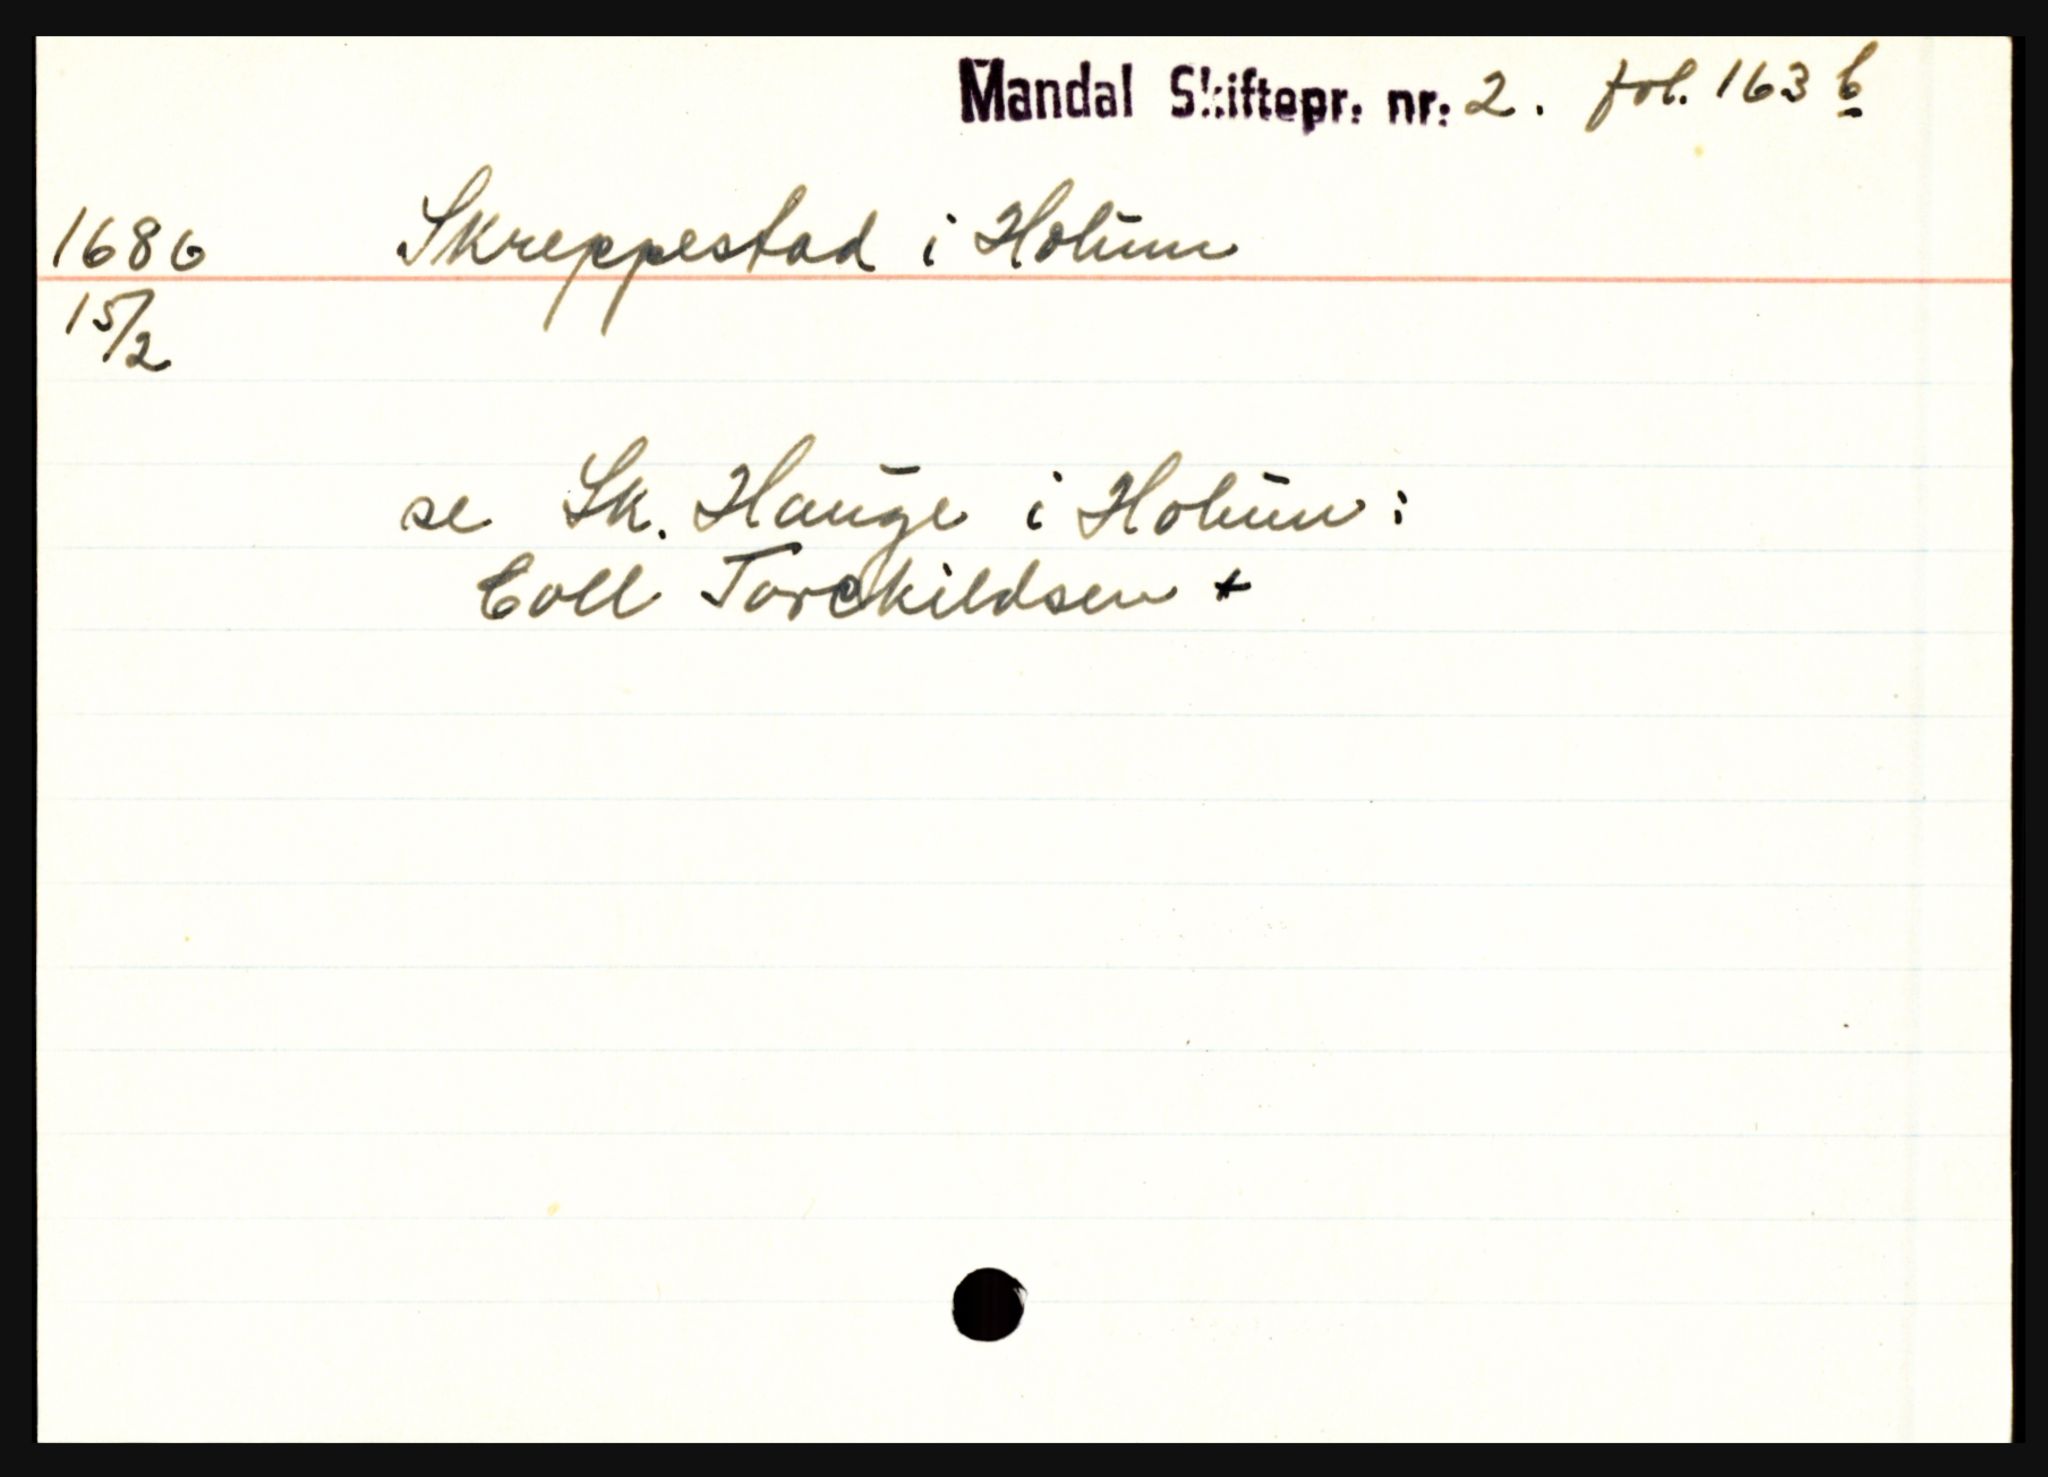 Mandal Skiftepr. nr: 2. fol. 163 b
1686 Skreppestad i Holum
15/2
se Sk. Hauge i Holum:
Coll Torckildsen +